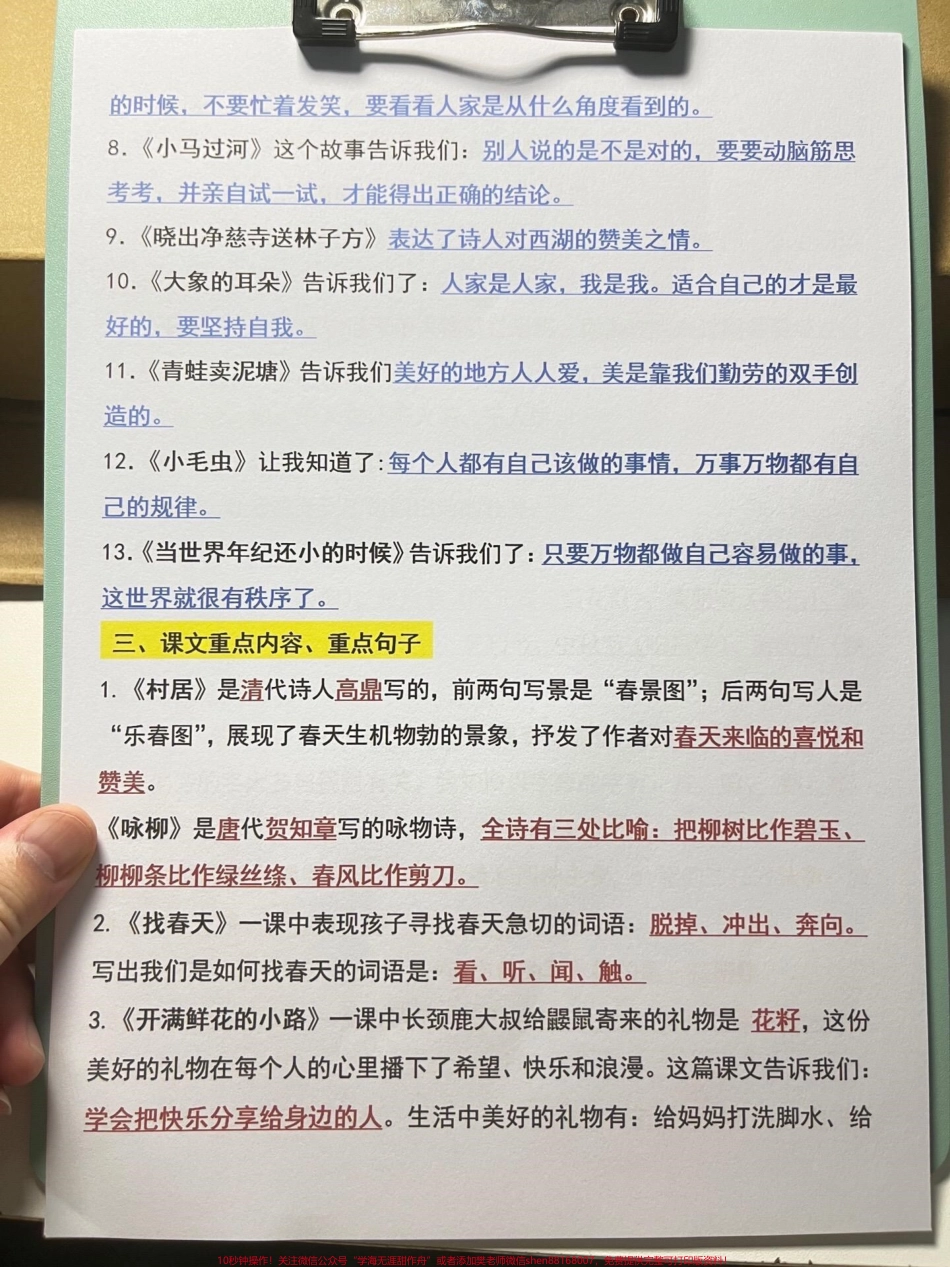 的时候，不要忙着发笑，要看看人家是从什么角度看到的。
8.《小马过河》这个故事告诉我们：别人说的是不是对的，要要动脑筋思
考考，并亲自试一试，才能得出正确的结论。
9.《晓出净慈寺送林子方》表达了诗人对西湖的赞美之情。
10.《大象的耳朵》告诉我们了：人家是人家，我是我。适合自己的才是最
好的，要坚持自我。
11.《青蛙卖泥塘》告诉我们美好的地方人人爱，美是靠我们勤劳的双手创
造的。
12.《小毛虫》让我知道了:每个人都有自己该做的事情，万事万物都有自
己的规律。
13.《当世界年纪还小的时候》告诉我们了：只要万物都做自己容易做的事，
这世界就很有秩序了。
三、课文重点内容、重点句子
1.《村居》是清代诗人高鼎写的，前两句写景是“春景图”；后两句写人是
“乐春图”，展现了春天生机物勃的景象，抒发了作者对春天来临的喜悦和
赞美。
《咏柳》是唐代贺知章写的咏物诗，全诗有三处比喻：把柳树比作碧玉、
柳柳条比作绿丝绦、春风比作剪刀。
2.《找春天》一课中表现孩子寻找春天急切的词语：脱掉、冲出、奔向。
写出我们是如何找春天的词语是：看、听、闻、触。
3.《开满鲜花的小路》一课中长颈鹿大叔给鼹鼠寄来的礼物是 花籽，这份
美好的礼物在每个人的心里播下了希望、快乐和浪漫。这篇课文告诉我们：
学会把快乐分享给身边的人。生活中美好的礼物有：给妈妈打洗脚水、给
10秒钟操作！关注微信公众号“学海无涯甜作舟”或者添加樊老师微信